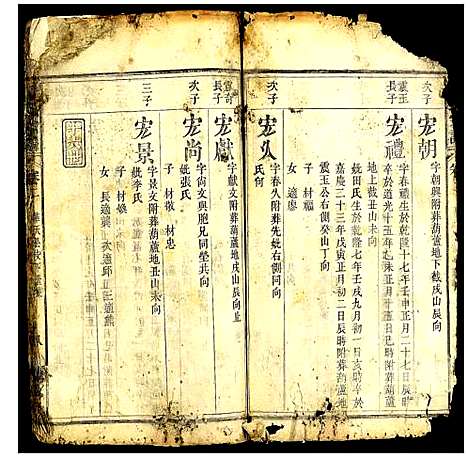 次子
宏朝
字朝興附葬葫蘆地下截戌山辰向
震玉
長子
宏禮
字春禮生於乾隆十七年壬申正月二十七日辰時
卒於道光十五年乙未正月十五日巳時附葬葫蘆
地上截丑山未向
妣田氏生於乾隆七年壬戌九月初一日亥時卒於
嘉慶二十三年戊寅正月初二日辰時附葬葫蘆地
震玉公右側癸山丁向
子 材福
女 適廖
次子
宏久
字春久附葬先妣右側同向
氏何
震奇
長子
宏獻
字獻文附葬葫蘆地戌山辰向
子 材敬 材忠
次子
宏尚
字尚文與胞兄同塋共向
妣張氏
三子
宏景
字景文附葬葫蘆地丑山未向
妣李氏
子 材
女 長適龔 次適邱 三適熊
十六世